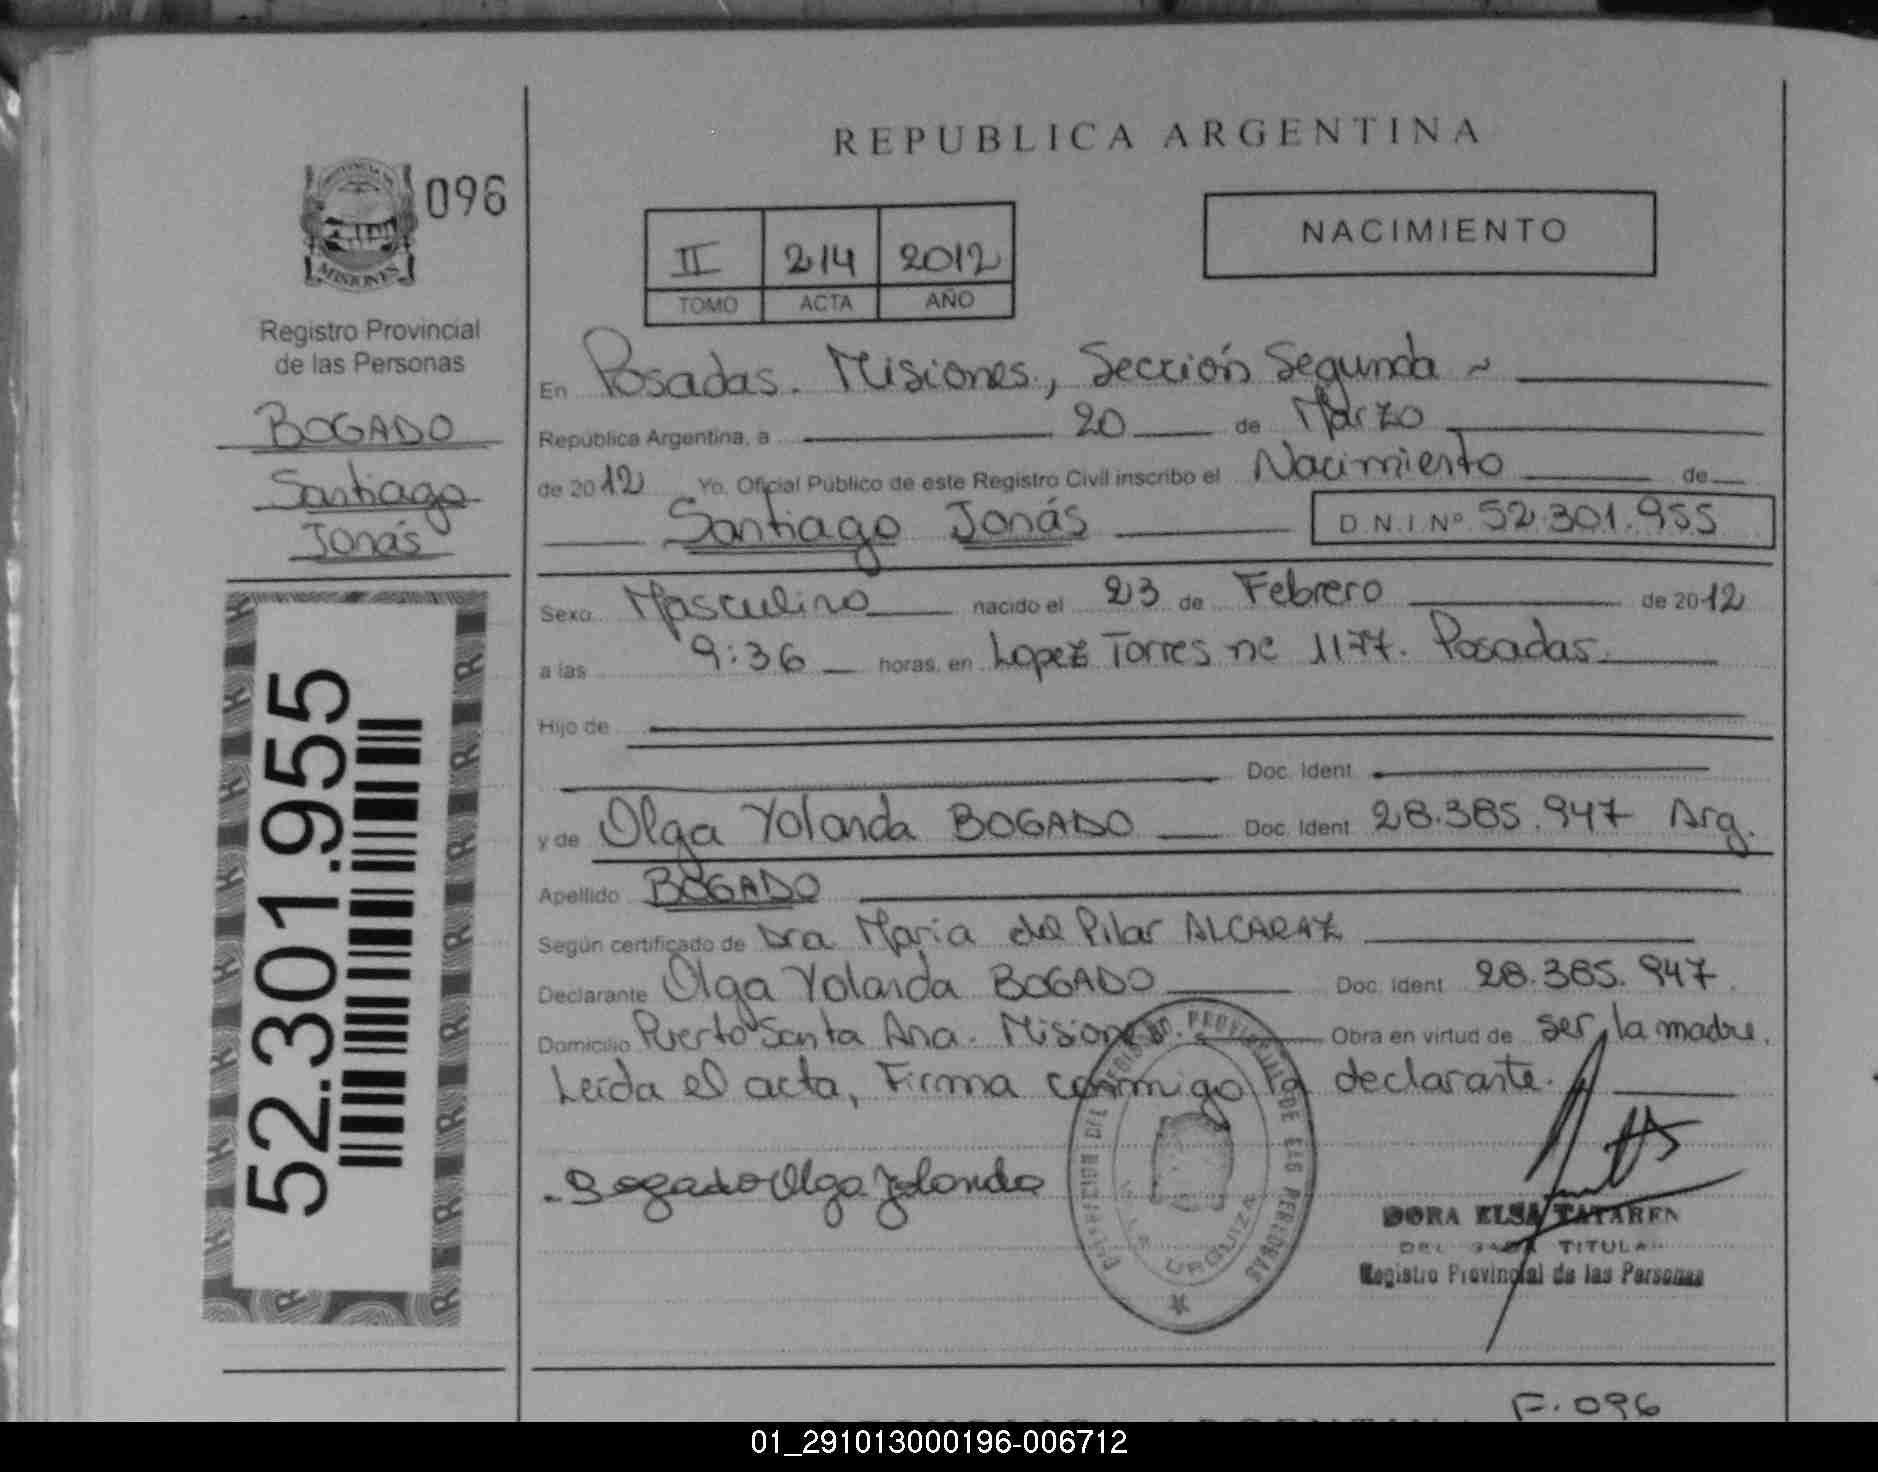 REPUBLICA ARGENTINA
096
NACIMIENTO
II 214 2012
TOMO ACTA AÑO
MISIONES
Registro Provincial
de las Personas
BOGADO
Santiago
Jonás
52.301.955
En Posadas. Misiones, Sección Segunda
República Argentina, a 20 de Marzo
de 2012 Yo, Oficial Público de este Registro Civil inscribo el Nacimiento de
Santiago Jonás D.N.I. Nº 52.301.955
Sexo Masculino nacido el 23 de Febrero de 2012
a las 9:36 horas, en Lopez Torres nº 1177. Posadas.
Hijo de
Doc. Ident
y de Olga Yolanda BOGADO Doc. Ident 28.385.947 Arg.
Apellido BOGADO
Según certificado de Dra Maria del Pilar ALCARAZ
Declarante Olga Yolanda BOGADO Doc. Ident 28.385.947.
Domicilio Puerto Santa Ana. Misiones. Obra en virtud de ser la madre.
Leída el acta, Firma conmigo la declarante.
Bogado Olga Yolanda
DE LAS PERSONAS
URQUIZA
DORA ELSA TATAREN
TITULAR
Registro Provincial de las Personas
F. 096
01_291013000196-006712